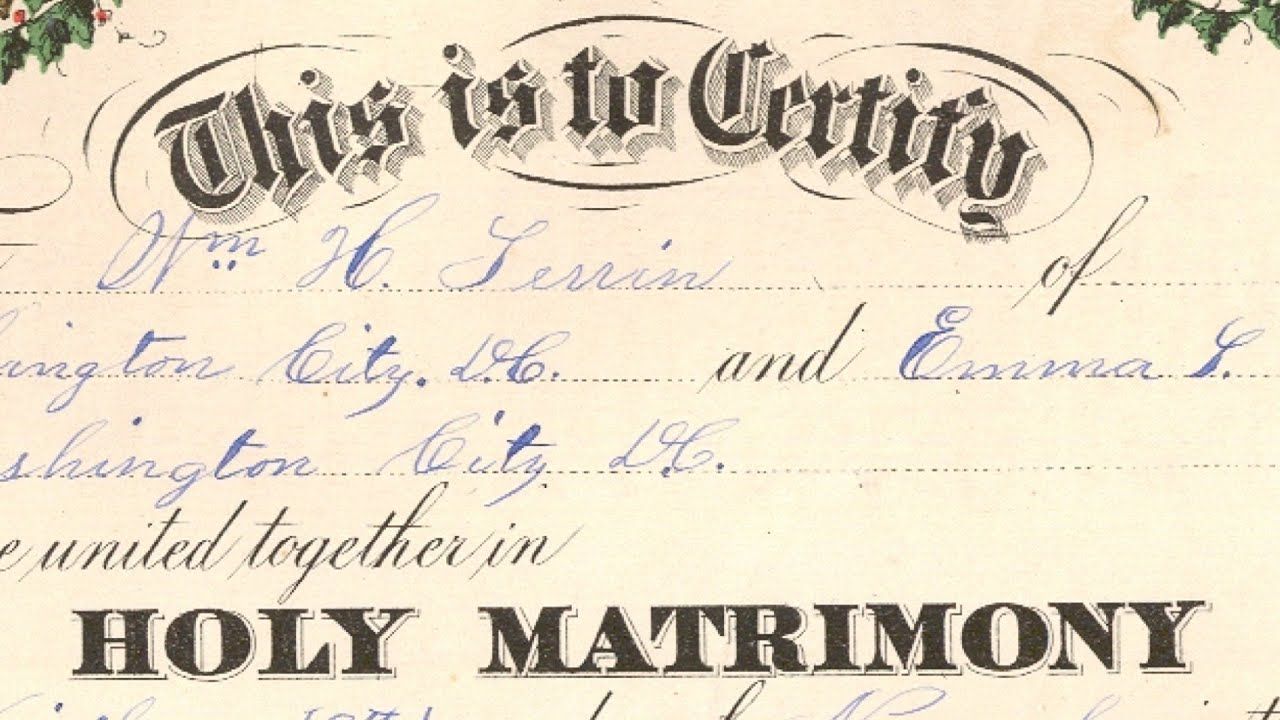 This is to Certify
Wm H. Terrin of
hington City. D.C. and Emma S.
shington City D.C.
e united together in
HOLY MATRIMONY